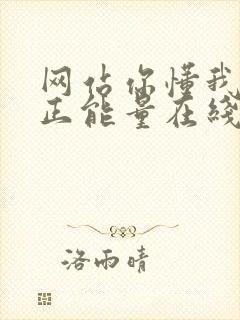 网站你懂我
正能量在线
洛雨晴